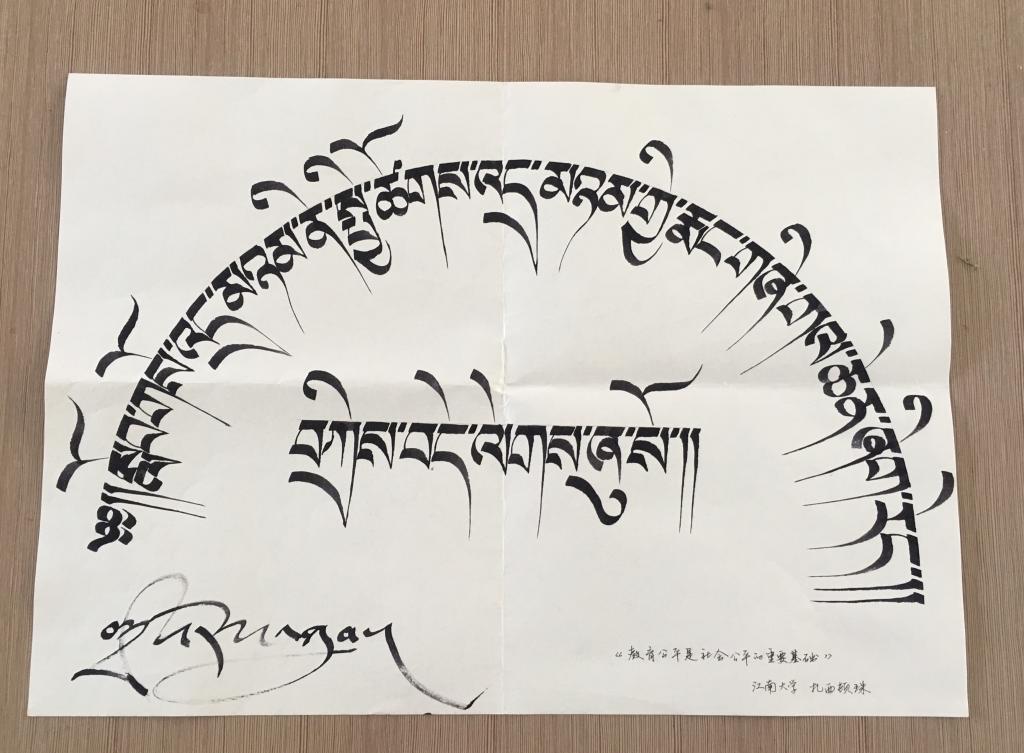 ༄༅།།སློབ་གསོ་འདྲ་མཉམ་ནི་སྤྱི་ཚོགས་འདྲ་མཉམ་གྱི་རྨང་གཞི་གལ་ཆེན་ཞིག་རེད།།
བཀྲིས་བདེ་ལེགས་ཞུ་སོ།།
“教育公平是社会公平的重要基础”
江南大学 扎西顿珠